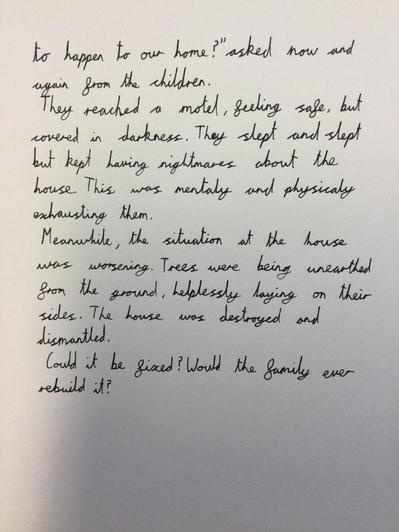 to happen to our home?" asked now and
again from the children.
They reached a motel, feeling safe, but
covered in darkness. They slept and slept
but kept having nightmares about the
house. This was mentaly and physicaly
exhausting them.
Meanwhile, the situation at the house
was worsening. Trees were being unearthed
from the ground, helplessly laying on their
sides. The house was destroyed and
dismantled.
Could it be fixed? Would the family ever
rebuild it?